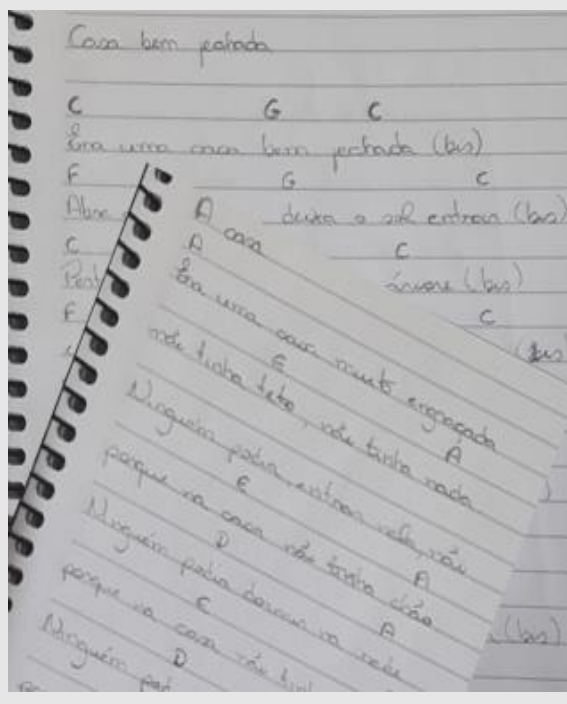 Casa bem fechada
C G C
Era uma casa bem fechada (bis)
F G C
Abre deixa o sol entrar (bis)
C C
árvore (bis)
F C
(bis)
(bis)
A casa
A
Era uma casa muito engraçada
E A
não tinha teto, não tinha nada
Ninguém podia entrar nela, não
E A
porque na casa não tinha chão
D A
Ninguém podia dormir na rede
E
porque na casa não tinh
D
Ninguém pod